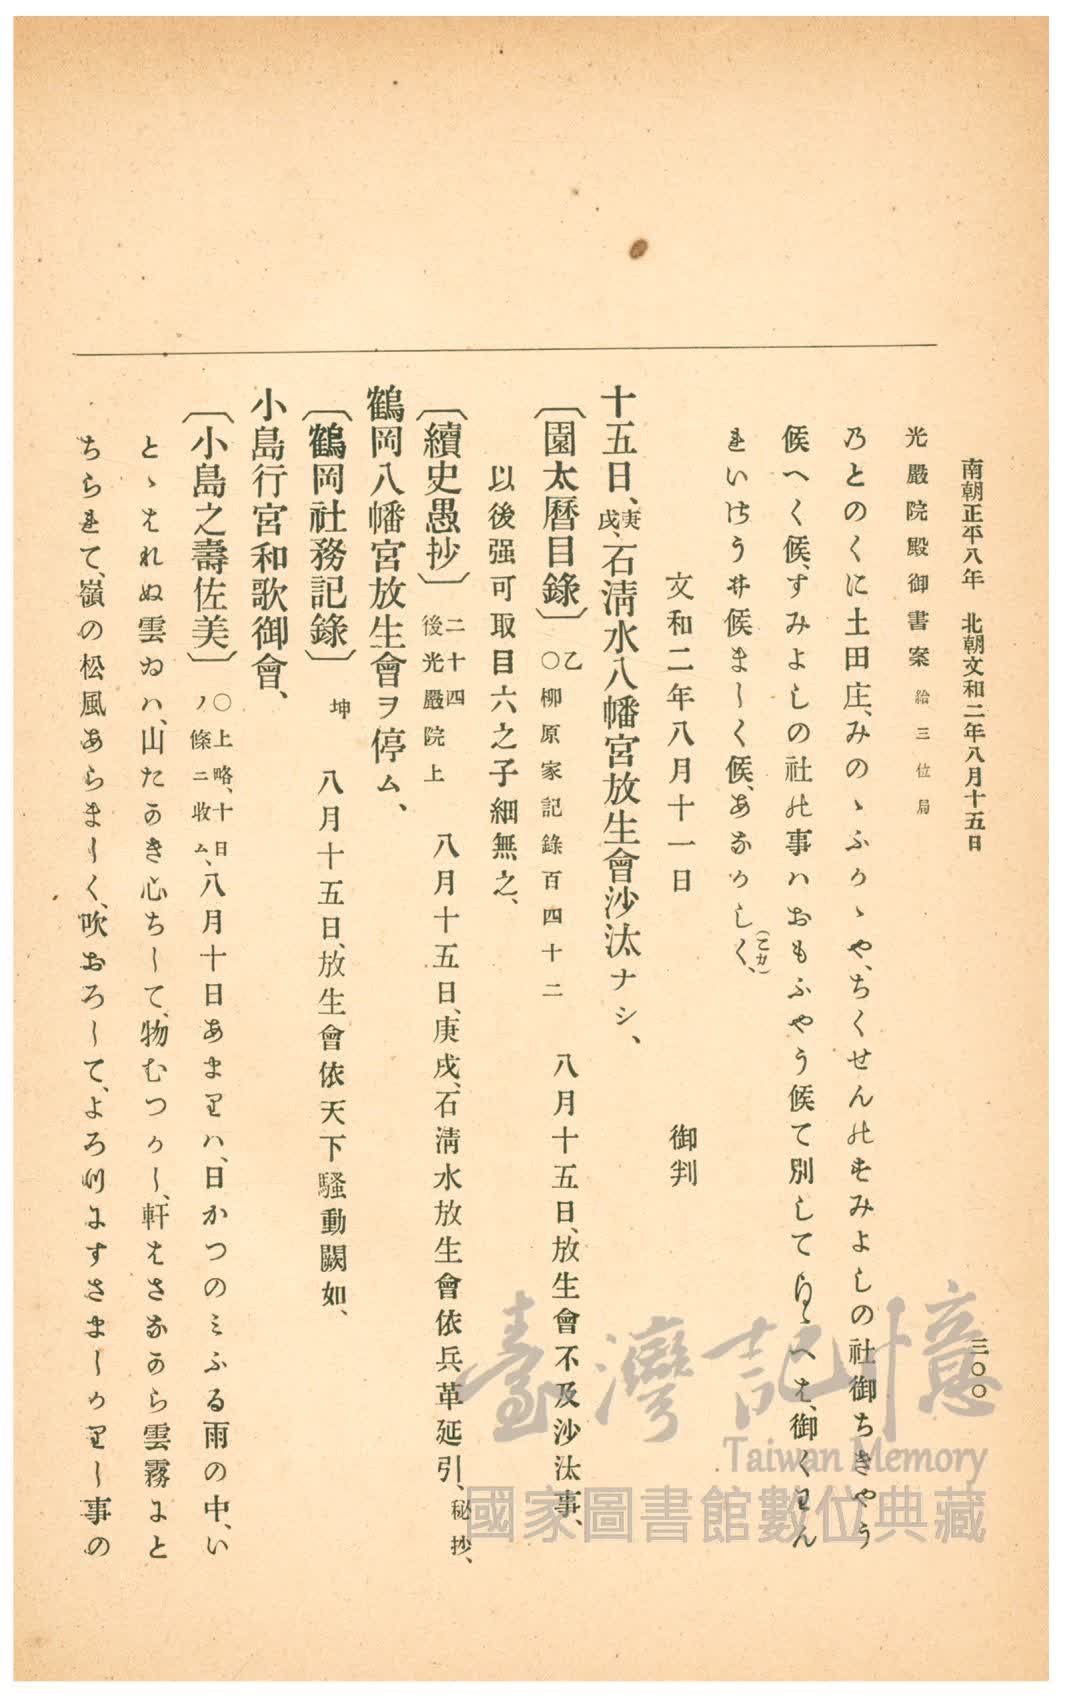 南朝正平八年　北朝文和二年八月十五日　三〇〇
光嚴院殿御書案 給三位局
乃とのくに土田庄、みのゝふかゝや、ちくせんのすみよしの社御ちきやう
候へく候、すみよしの社の事ハおもふやう候て別して候へは、御くわん
れいけう井候ましく候、あなかしく、(こカ)
文和二年八月十一日　御判
十五日、庚戌、石淸水八幡宮放生會沙汰ナシ、
〔園太曆目錄〕 乙〇柳原家記錄百四十二　八月十五日、放生會不及沙汰事、
以後强可取目六之子細無之、
〔續史愚抄〕 二十四後光嚴院上　八月十五日、庚戌、石淸水放生會依兵革延引、秘抄、
鶴岡八幡宮放生會ヲ停ム、
〔鶴岡社務記錄〕 坤　八月十五日、放生會依天下騷動闕如、
小島行宮和歌御會、
〔小島之壽佐美〕 〇上略、十日ノ條ニ收ム、八月十日あまりハ、日かつのミふる雨の中、い
とゝはれぬ雲ゐハ、山たかき心ちして、物むつかし、軒はさなから雲霧にと
ちられて、嶺の松風あらましく、吹おろして、よろつにすさましかりし事の
臺灣記憶
Taiwan Memory
國家圖書館數位典藏